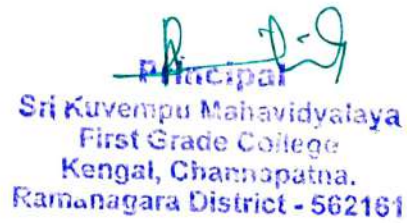 Principal
Sri Kuvempu Mahavidyalaya
First Grade College
Kengal, Channapatna.
Ramanagara District - 562161